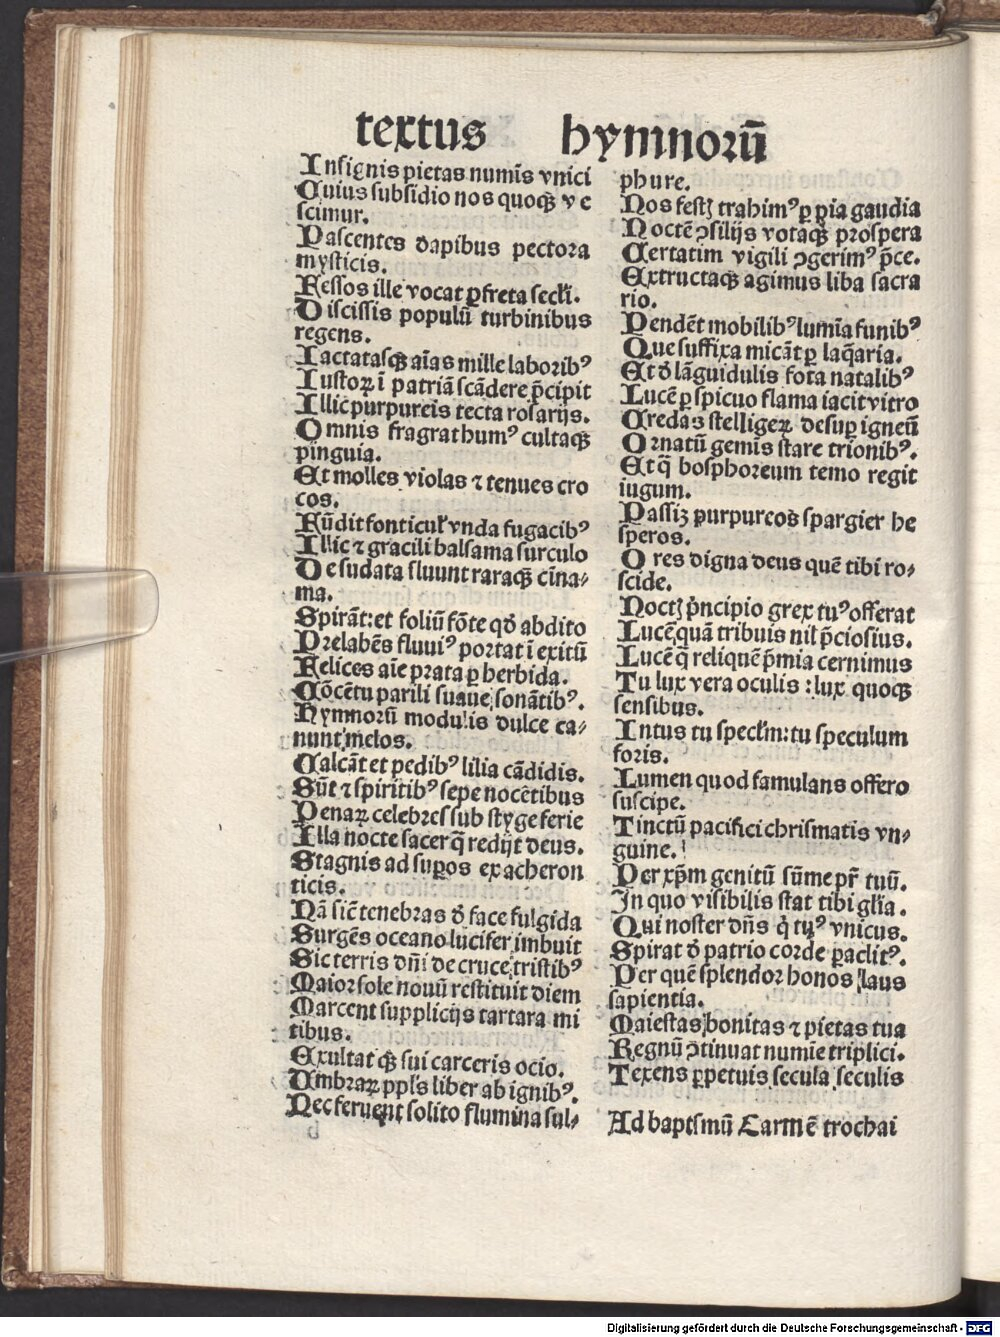 textus hymnorū
Insignis pietas numīs vnici
Cuius subsidio nos quoqꝫ ve
scimur.
Pascentes dapibus pectora
mysticis.
Fessos ille vocat ꝑ freta secl̄i.
Discissis populū turbinibus
regens.
Iactatasqꝫ aīas mille laboribꝰ
Iustoꝝ ī patriā scādere p̄cipit
Illic purpureis tecta rosarijs.
Omnis fragrat humꝰ cultaqꝫ
pinguia.
Et molles violas ⁊ tenues cro
cos.
Fūdit fonticul̉ vnda fugacibꝰ
Illic ⁊ gracili balsama surculo
Desudata fluunt raraqꝫ cīna-
ma.
Spirāt: et foliū fōte qd̄ abdito
Prelabēs fluuiꝰ portat ī exitū
Felices aīe prata ꝑ herbida.
Cōcētu parili suaue sonātibꝰ.
Hymnorū modulis dulce ca-
nunt melos.
Calcāt et pedibꝰ lilia cādidis.
Sūt ⁊ spiritibꝰ sepe nocētibus
Penaꝝ celebres sub styge ferie
Illa nocte sacer q̄ redijt deus.
Stagnis ad suꝑos ex acheron
ticis.
Nā sic̄ tenebras d̄ face fulgida
Surgēs oceano lucifer imbuit
Sic terris dn̄i de cruce tristibꝰ
Maior sole nouū restituit diem
Marcent supplicijs tartara mi
tibus.
Exultat qꝫ sui carceris ocio.
Vmbraꝝ ppl̄s liber ab ignibꝰ.
Nec feruent solito flumina sul-
phure.
Nos festꝫ trahimꝰ ꝑ pia gaudia
Noctē ꝯsilijs votaqꝫ prospera
Certatim vigili ꝯgerimꝰ p̄ce.
Extructaqꝫ agimus liba sacra
rio.
Pendēt mobilibꝰ lumīa funibꝰ
Que suffixa micāt ꝑ laq̄aria.
Et d̄ lāguidulis fota natalibꝰ
Lucē ꝑspicuo flama iacit vitro
Credas stelligeꝝ desuꝑ igneū
Ornatū gemis stare trionibꝰ.
Et q̄ bosphoreum temo regit
iugum.
Passiꝫ purpureos spargier he
speros.
O res digna deus quē tibi ro-
scide.
Noctꝫ p̄ncipio grex tuꝰ offerat
Lucē, quā tribuis nil p̄ciosius.
Lucē q̄ reliquē p̄mia cernimus
Tu lux vera oculis: lux quoqꝫ
sensibus.
Intus tu specl̄m: tu speculum
foris.
Lumen quod famulans offero
suscipe.
Tinctū pacifici chrismatis vn-
guine.
Per xp̄m genitū sūme pr̄ tuū.
In quo visibilis stat tibi gl̄ia.
Qui noster dn̄s q̇ tuꝰ vnicus.
Spirat d̄ patrio corde ꝑaclitꝰ.
Per quē splendor honos laus
sapientia.
Maiestas bonitas ⁊ pietas tua
Regnū ꝯtinuat numīe triplici.
Texens ꝑpetuis secula seculis
Ad baptsmū Carm̄ ē trochai
Digitalisierung gefördert durch die Deutsche Forschungsgemeinschaft - DFG